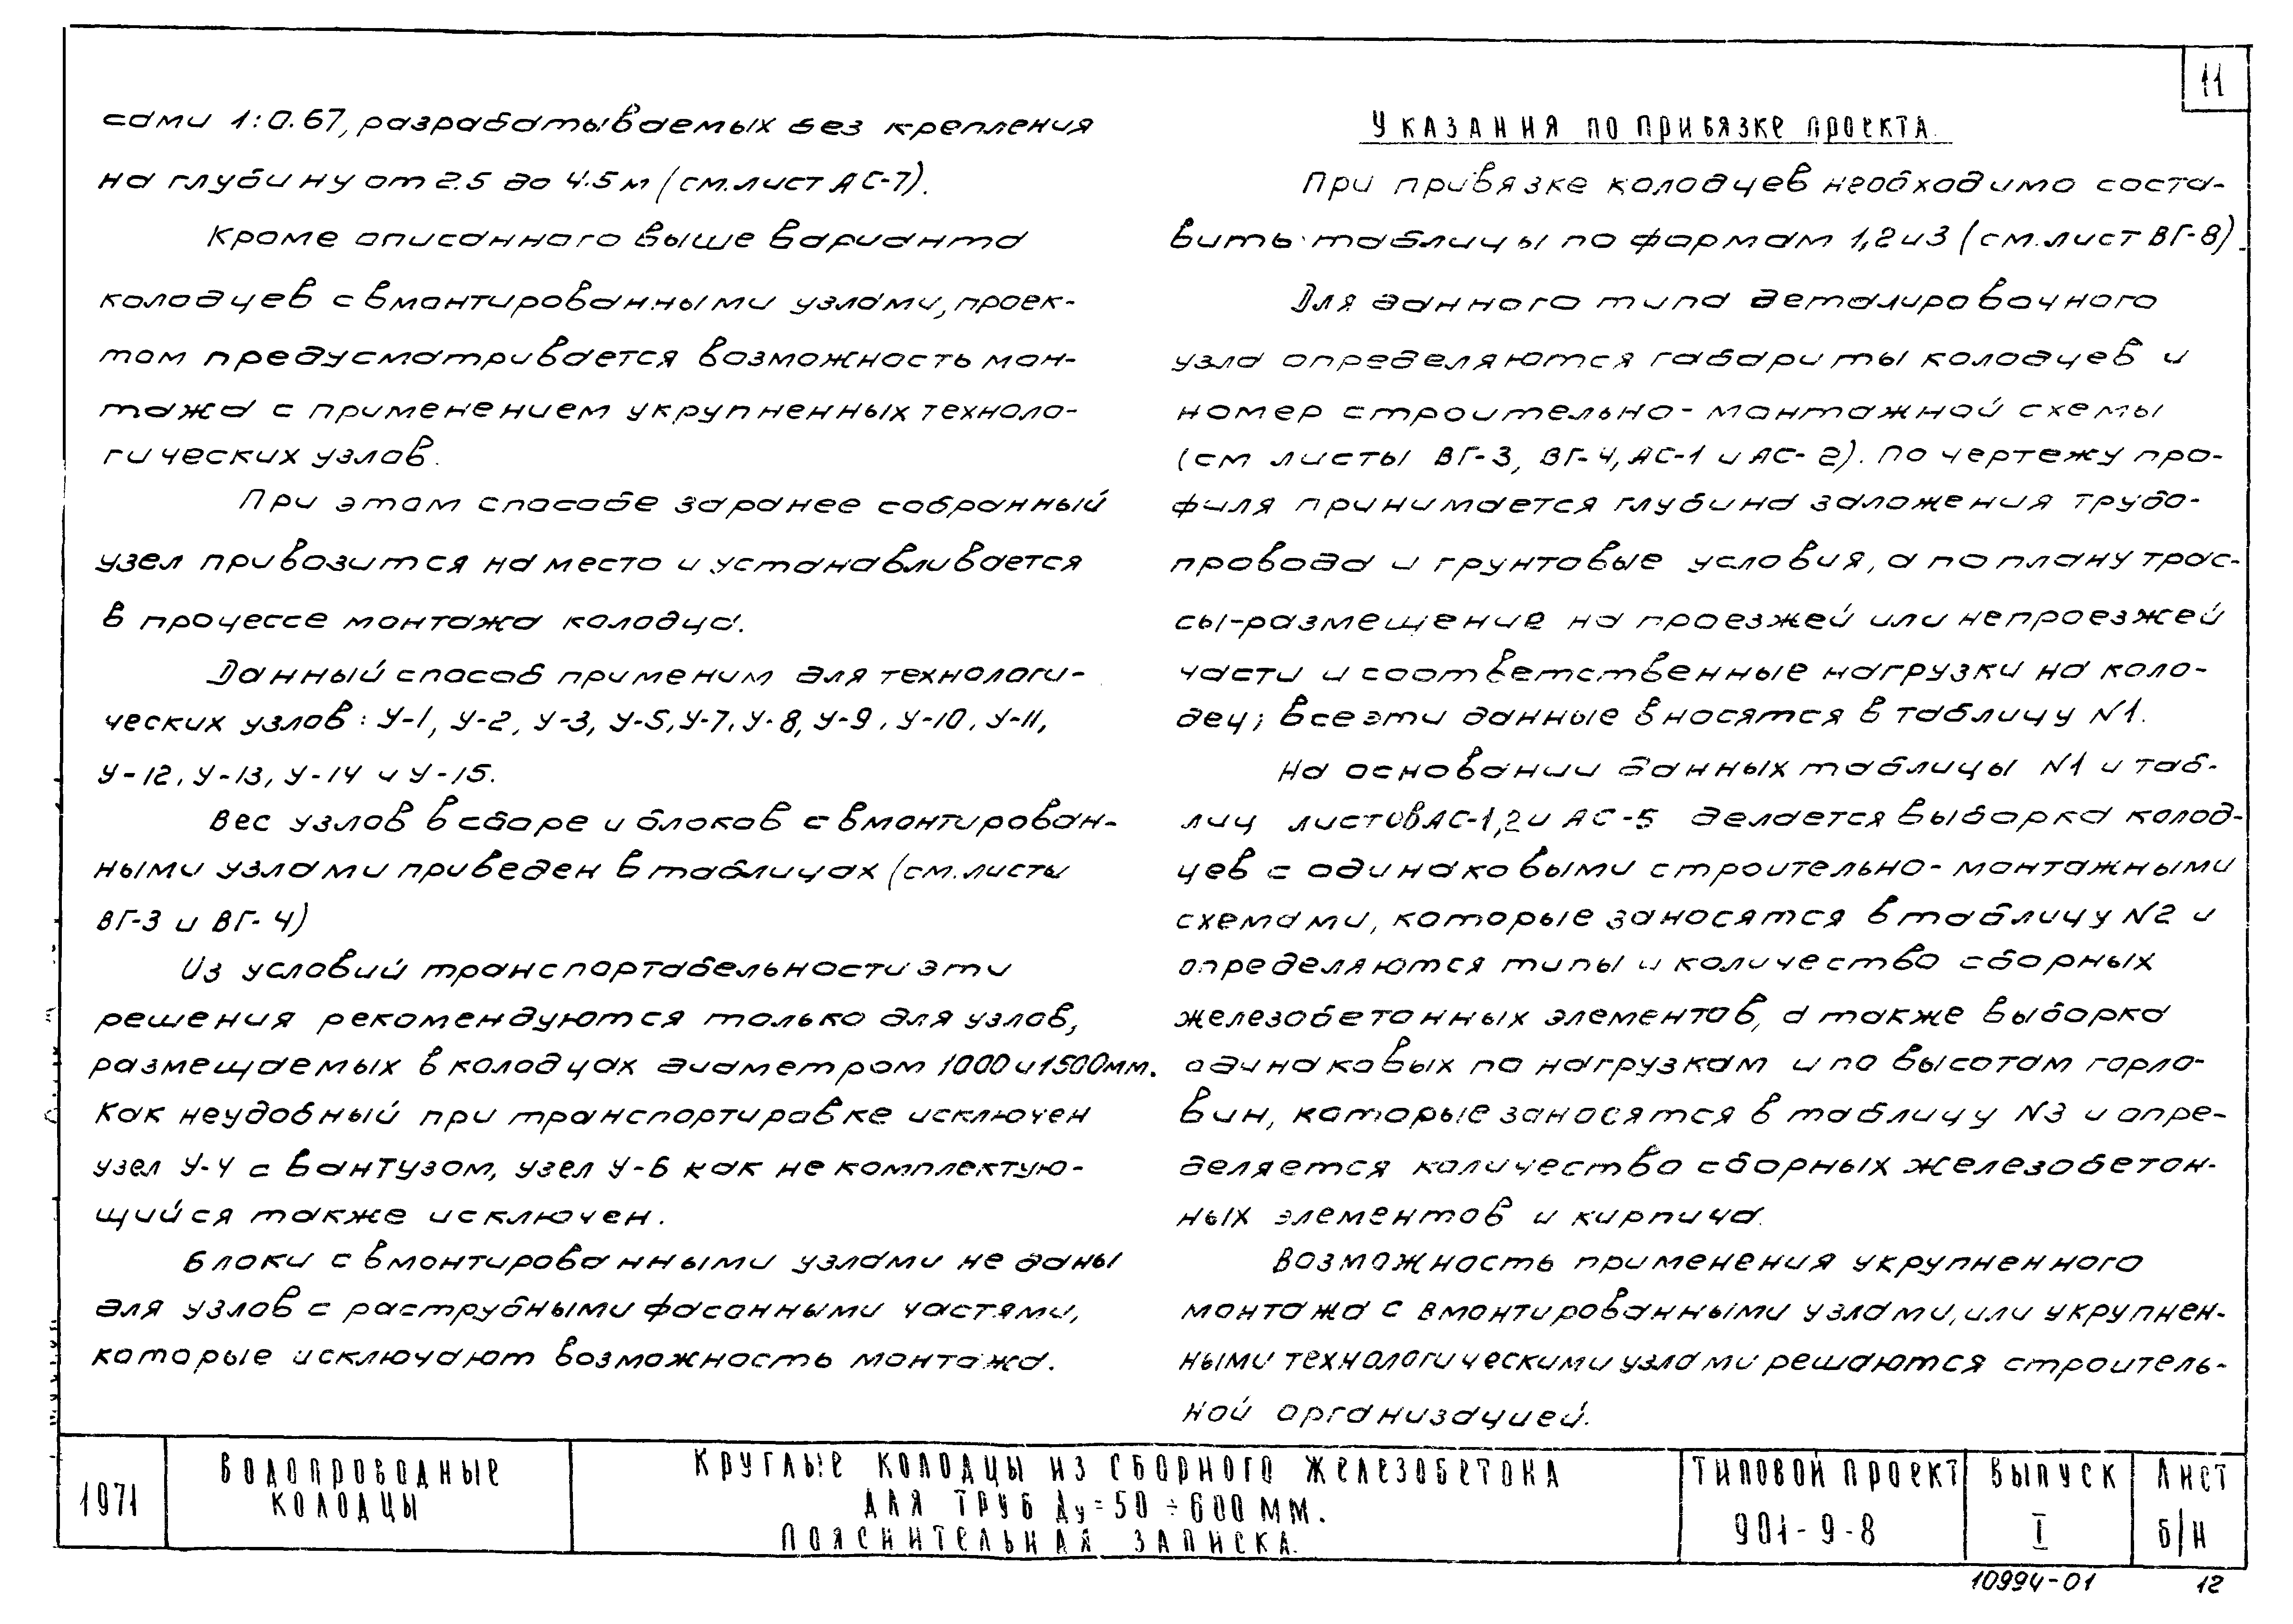 11
сами 1:0.67, разрабатываемых без крепления
на глубину от 2.5 до 4.5 м (см. лист АС-7).
Кроме описанного выше варианта
колодцев с вмонтированными узлами, проек-
том предусматривается возможность мон-
тажа с применением укрупненных техноло-
гических узлов.
При этом способе заранее собранный
узел привозится на место и устанавливается
в процессе монтажа колодца.
Данный способ применим для технологи-
ческих узлов: У-1, У-2, У-3, У-5, У-7, У-8, У-9, У-10, У-11,
У-12, У-13, У-14 и У-15.
Вес узлов в сборе и блоков с вмонтирован-
ными узлами приведен в таблицах (см. листы
ВГ-3 и ВГ-4)
Из условий транспортабельности эти
решения рекомендуются только для узлов,
размещаемых в колодцах диаметром 1000 и 1500мм.
Как неудобный при транспортировке исключен
узел У-4 с вантузом, узел У-6 как не комплектую-
щийся также исключен.
Блоки с вмонтированными узлами не даны
для узлов с раструбными фасонными частями,
которые исключают возможность монтажа.
Указания по привязке проекта.
При привязке колодцев необходимо соста-
вить таблицы по формам 1,2 и 3 (см. лист ВГ-8).
Для данного типа деталировочного
узла определяются габариты колодцев и
номер строительно-монтажной схемы
(см листы ВГ-3, ВГ-4, АС-1 и АС-2). По чертежу про-
филя принимается глубина заложения трубо-
провода и грунтовые условия, а по плану трас-
сы-размещение на проезжей или непроезжей
части и соответственные нагрузки на коло-
дец; все эти данные вносятся в таблицу N1.
На основании данных таблицы N1 и таб-
лиц листов АС-1,2 и АС-5 делается выборка колод-
цев с одинаковыми строительно-монтажными
схемами, которые заносятся в таблицу N2 и
определяются типы и количество сборных
железобетонных элементов, а также выборка
одинаковых по нагрузкам и по высотам горло-
вин, которые заносятся в таблицу N3 и опре-
деляется количество сборных железобетон-
ных элементов и кирпича.
Возможность применения укрупненного
монтажа с вмонтированными узлами, или укрупнен-
ными технологическими узлами решаются строитель-
ной организацией.
1971
Водопроводные
колодцы
Круглые колодцы из сборного железобетона
для труб Ду=50÷600 мм.
Пояснительная записка.
Типовой проект
901-9-8
Выпуск
I
Лист
б/н
10994-01
12